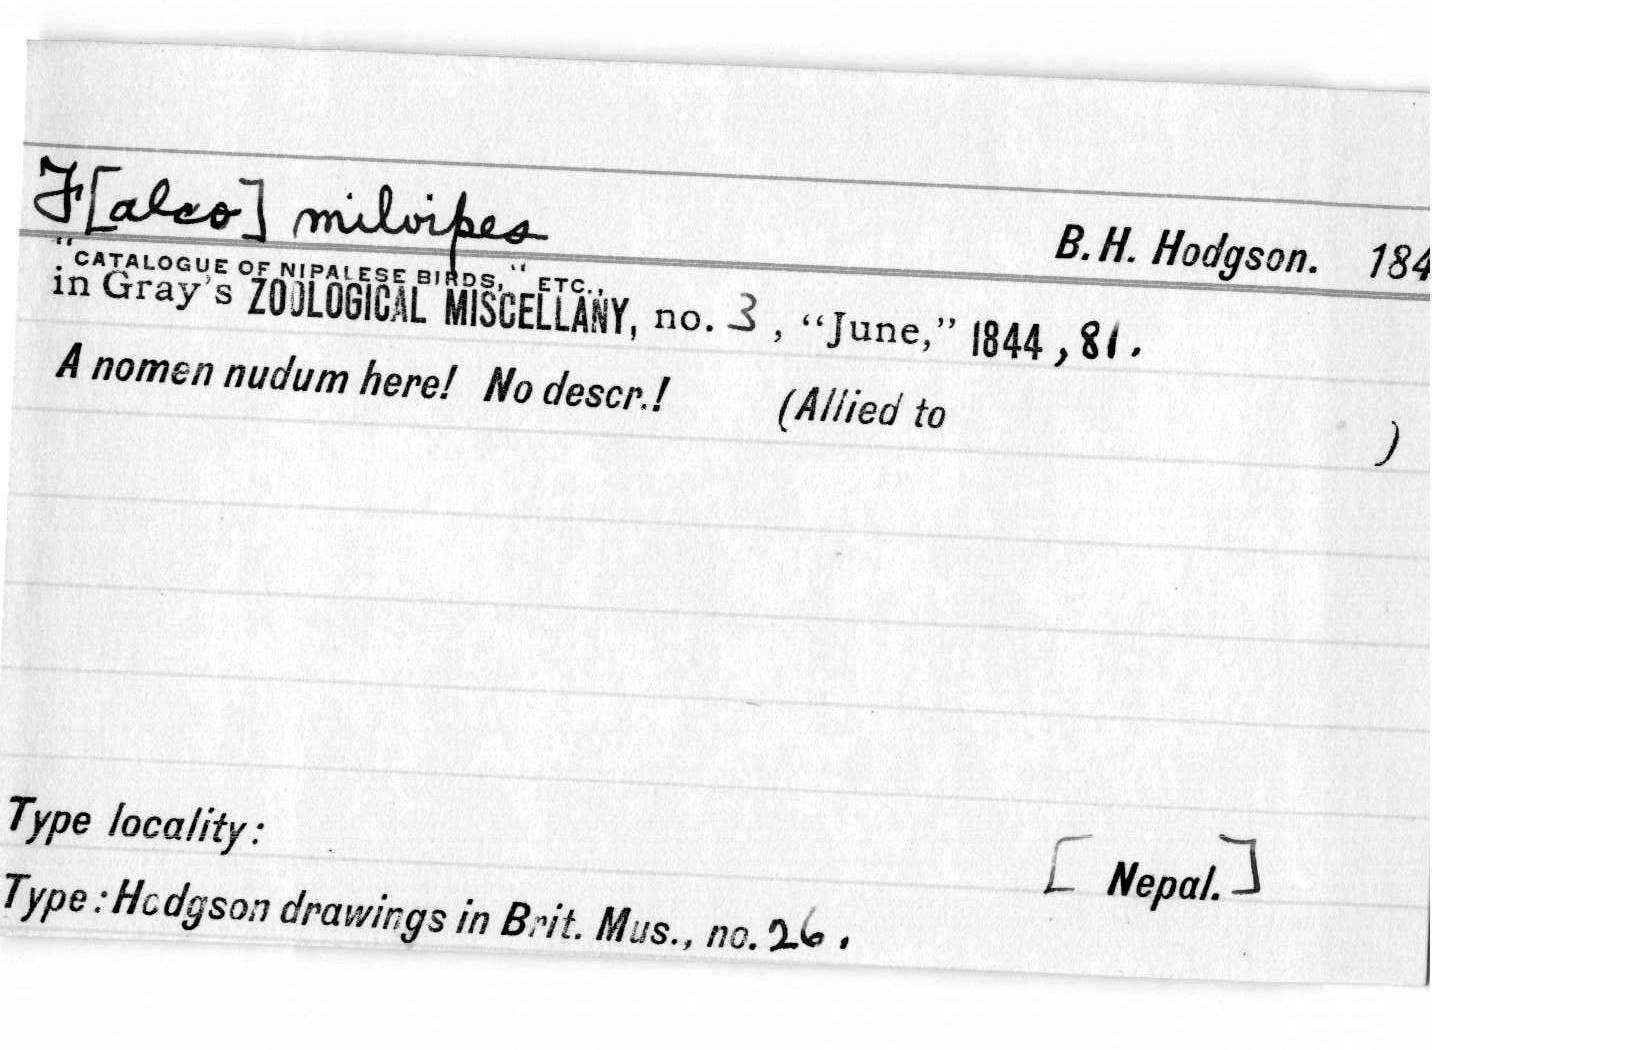 F[alco] milvipes
B. H. Hodgson. 184
"CATALOGUE OF NIPALESE BIRDS," ETC.,
in Gray's ZOOLOGICAL MISCELLANY, no. 3, “June,” 1844, 81.
A nomen nudum here! No descr.! (Allied to )
Type locality: [Nepal.]
Type: Hodgson drawings in Brit. Mus., no. 26.